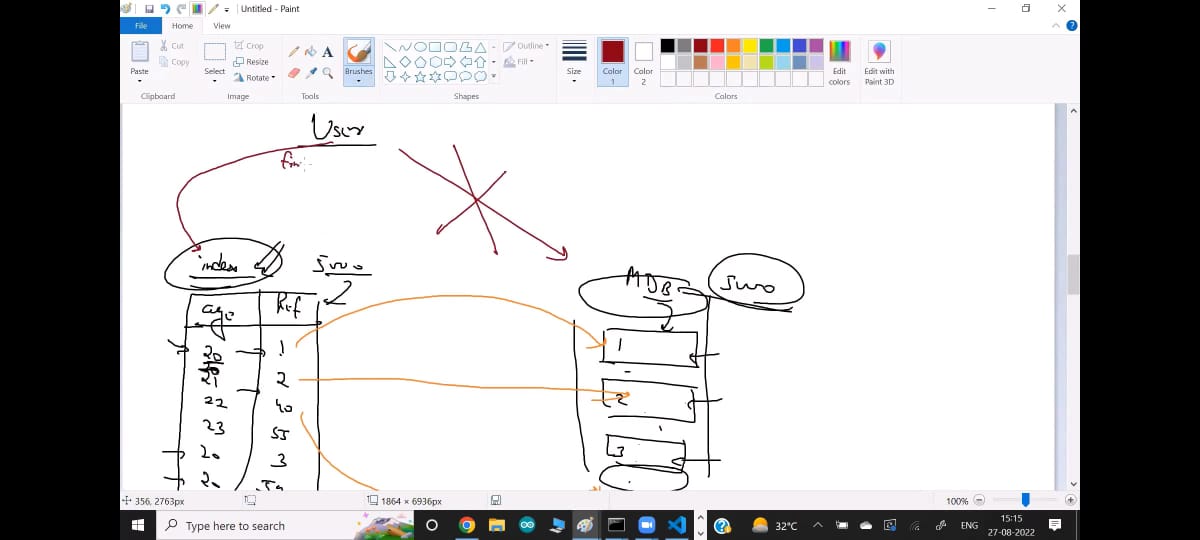 Untitled - Paint
File Home View
Paste
Cut
Copy
Clipboard
Select
Crop
Resize
Rotate
Image
A
Tools
Brushes
Outline
Fill
Shapes
Size
Color 1
Color 2
Edit colors
Edit with Paint 3D
Colors
User
index
MDB
age Ref
20 1
21 2
22 40
23 55
20 3
20
1
2
3
356, 2763px
1864 × 6936px
100%
Type here to search
32°C
ENG
15:15
27-08-2022